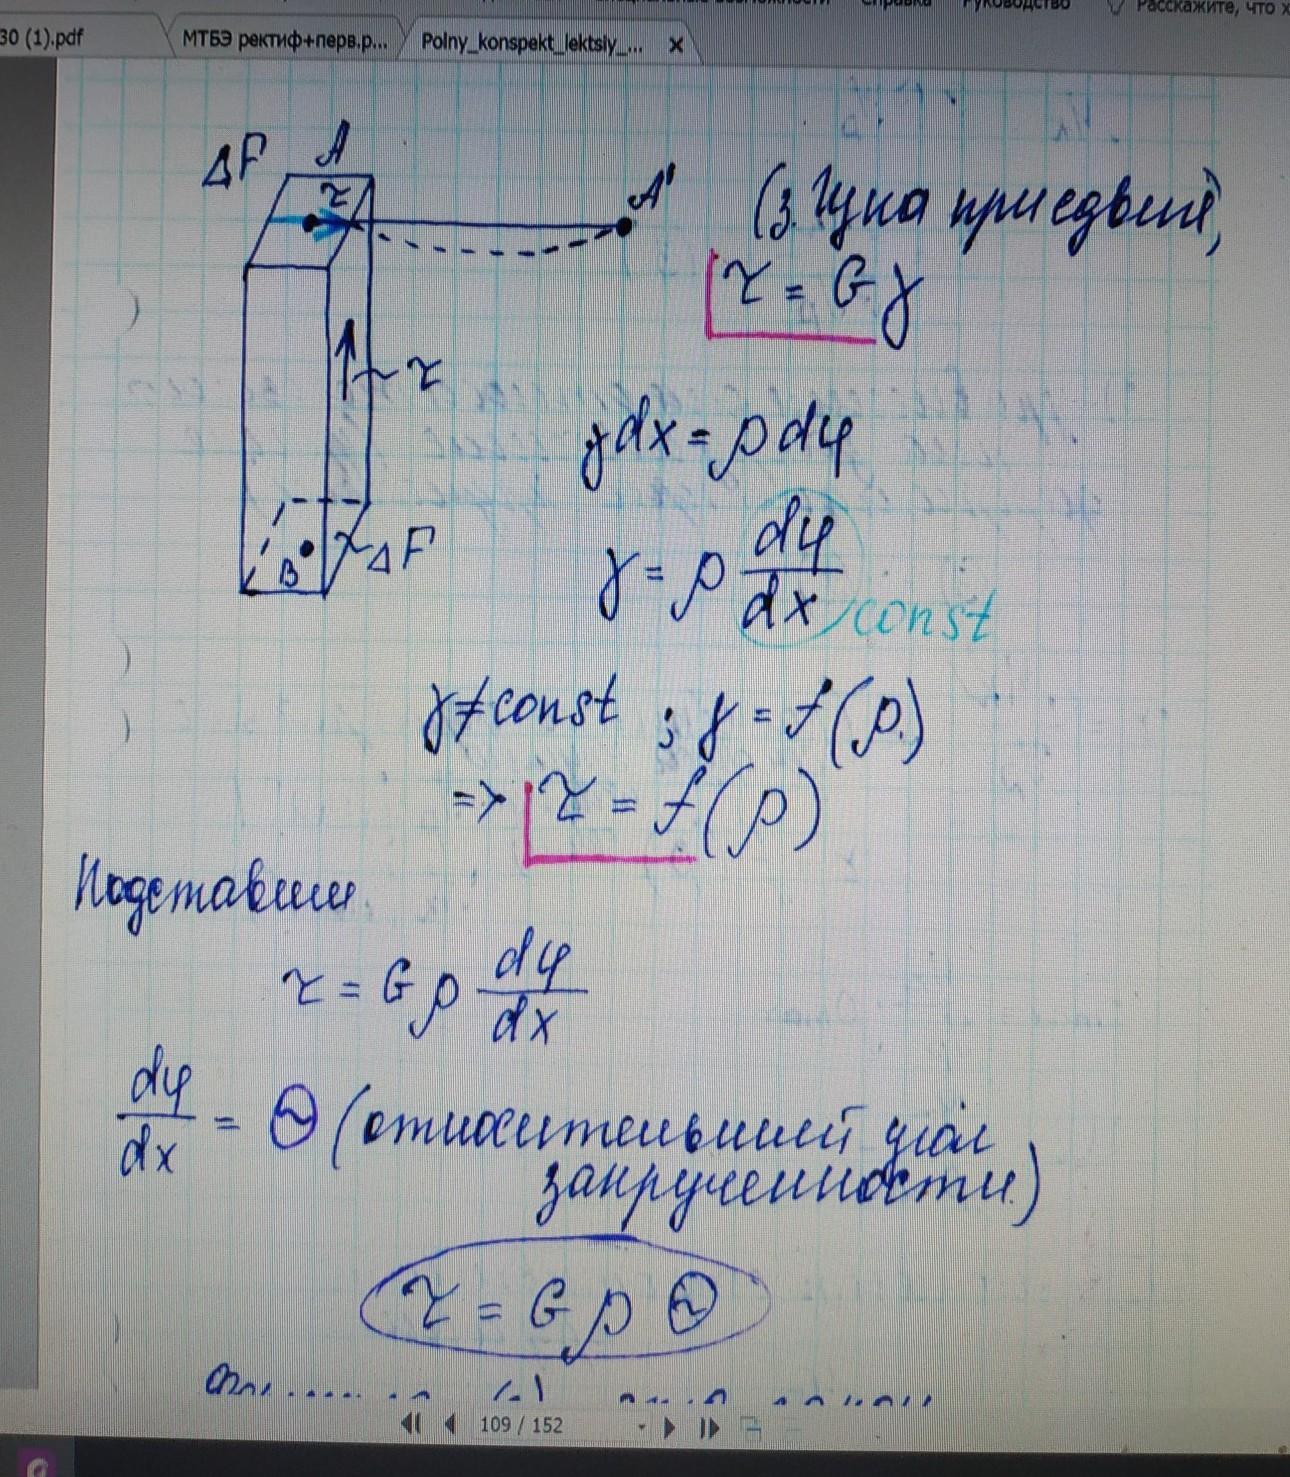 Справка
Руководство
Расскажите, что х
30 (1).pdf
МТБЭ ректиф+перв.р...
Polny_konspekt_lektsiy_...
ΔF A
τ
A'
(з. Гука при сдвиге)
τ = Gγ
τ
γdx = ρdφ
γ = ρ dφ/dx const
B ΔF
γ ≠ const ; γ = f(ρ)
=> τ = f(ρ)
Подставим
τ = Gρ dφ/dx
dφ/dx = Θ (относительный угол
закрученности)
τ = GρΘ
109 / 152